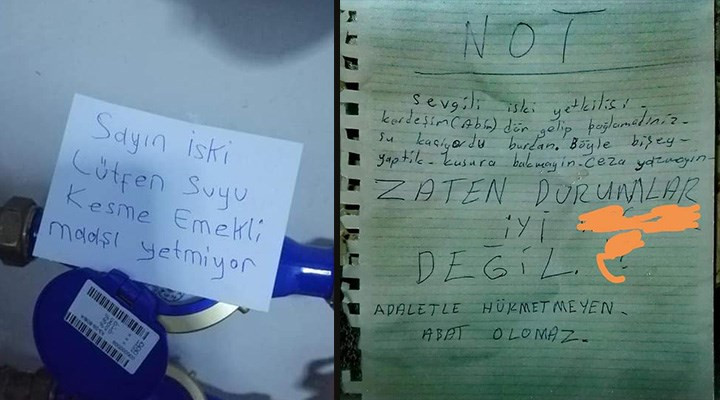 Sayın iski
Lütfen Suyu
Kesme Emekli
maaşı yetmiyor
NOT
Sevgili iski yetkilisi -
kardeşim (Abim) dün gelip bağlamadınız -
su kaçıyordu burdan. Böyle bişey -
yaptık - kusura bakmayın - Ceza yazmayın -
ZATEN DURUMLAR
İYİ
DEĞİL.
ADALETLE HÜKMETMEYEN.
ABAT OLOMAZ.